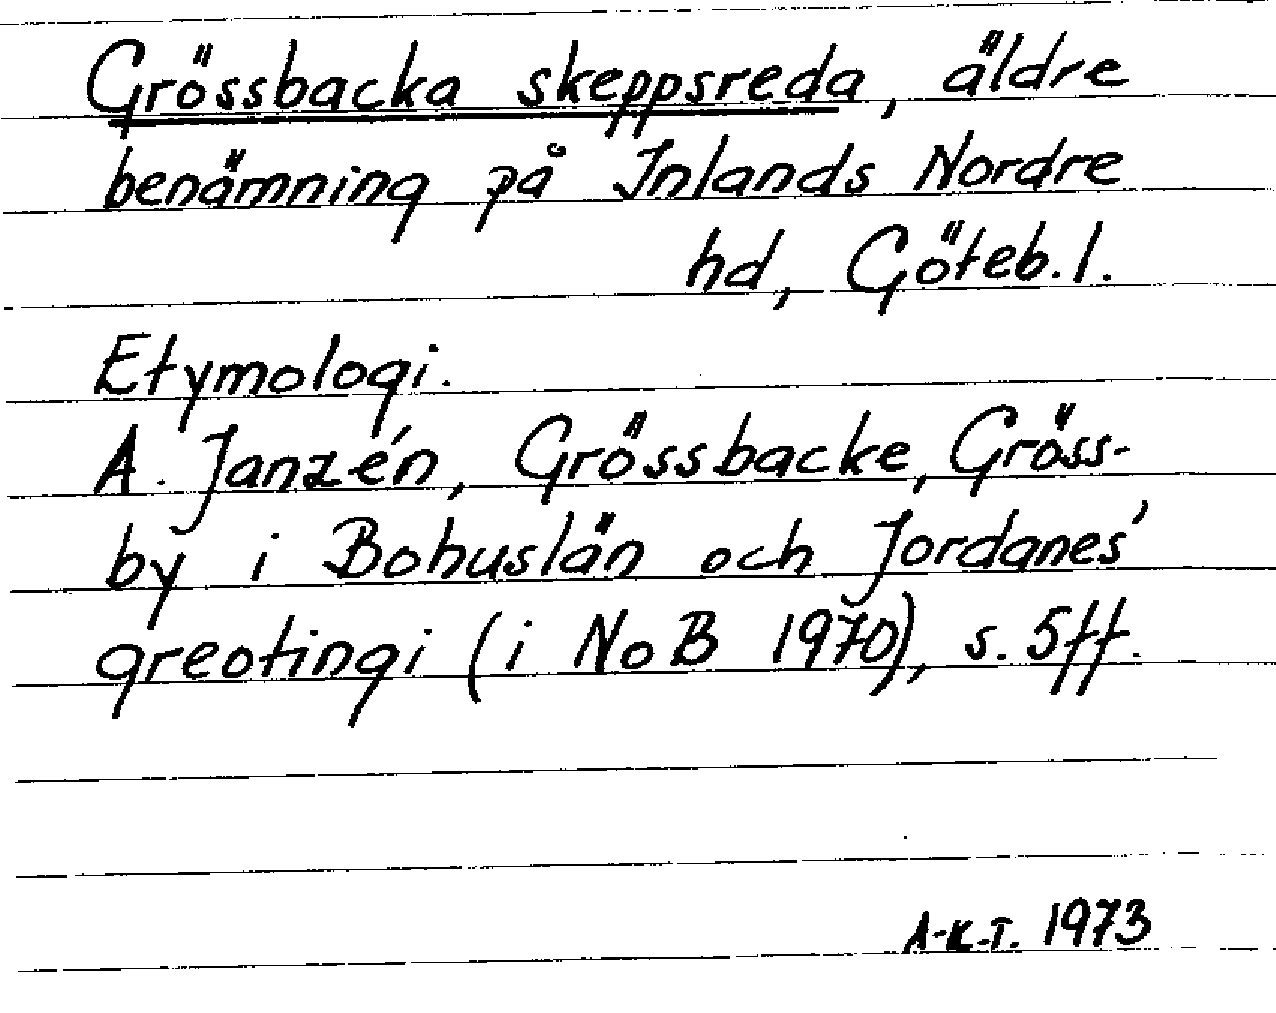 Grössbacka skeppsreda, äldre
benämning på Inlands Nordre
hd, Göteb. l.
Etymologi.
A. Janzén, Grössbacke, Gröss-
by i Bohuslän och Jordanes'
greotingi (i NoB 1970), s. 5ff.
A-K.T. 1973